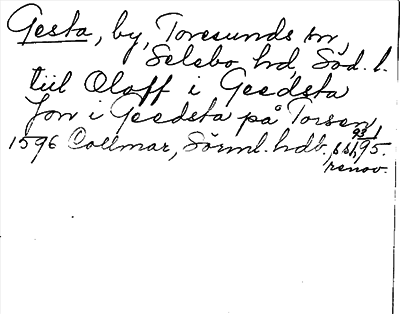 Gesta, by, Toresunds sn,
Selebo hd, Söd. l.
till Oloff i Geedsta
Jon i Geedsta på Torsön
1596 Collmar, Sörml. hdb. ssh 95.
93/1
renov.